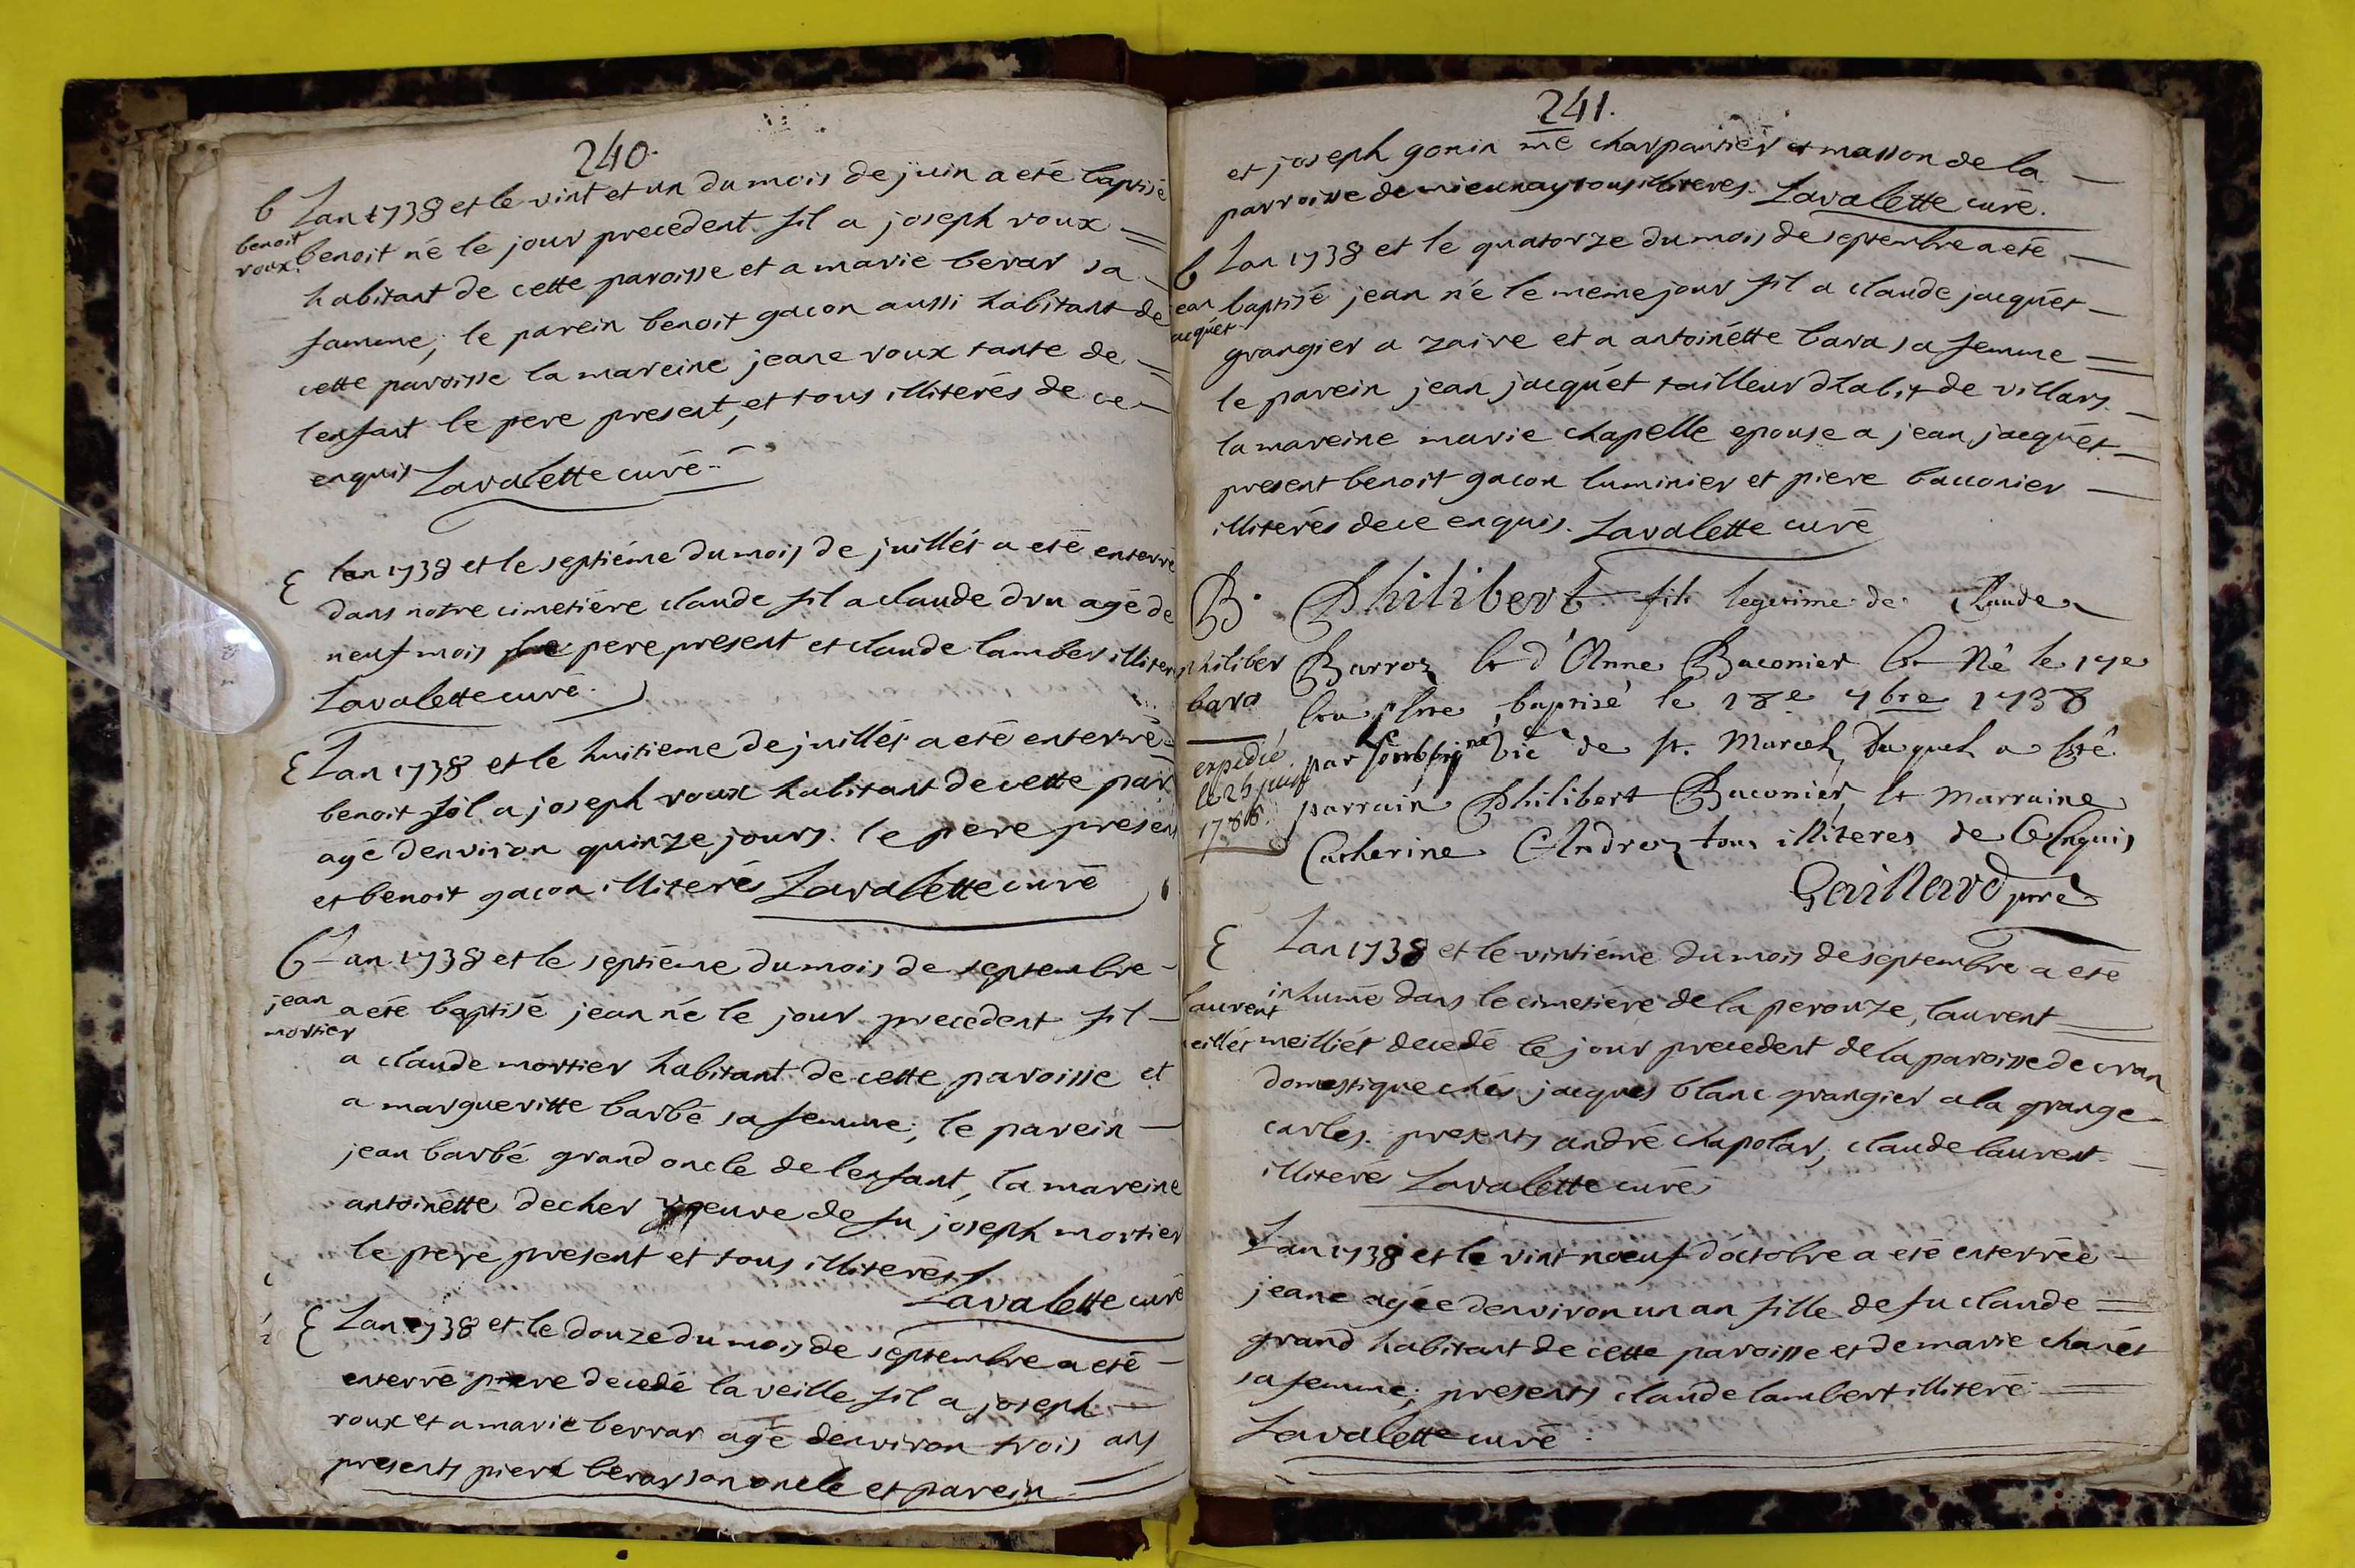 240.
b Lan 1738 et le vint et un du mois de juin a eté baptisé
benoit
roux.
benoit né le jour precedent fil a joseph roux
habitant de cette paroisse et a marie berar sa
famme; le parein benoit gacon aussi habitant de
cette paroisse la mareine jeane roux tante de
lenfant le pere present, et tous illiterés de ce
enquis Lavalette curé
E lan 1738 et le septiéme du mois de juillet a eté enterré
dans notre cimetiére claude fil a claude dru agé de
neuf mois pere present et claude lamber illiter
Lavalette curé.
E Lan 1738 et le huitieme de juillét a eté enterré
benoit fil a joseph roux habitant de cette par
agé denviron quinze jours. le pere present
et benoit gacon illiterés Lavalette curé
b Lan 1738 et le septiéme du mois de septembre
jean
mortier
a eté baptisé jean né le jour precedent fil
a claude mortier habitant de cette paroisse et
a margueritte barbé sa femme; le parein
jean barbé grand oncle de lenfant, la mareine
antoinétte decher veuve de fu joseph mortier
le pere present et tous illiterés
Lavalette curé
E Lan 1738 et le douze du mois de septembre a eté
enterré piere decedé la veille fil a joseph
roux et a marie berrar agé denviron trois ans
presents piere berar son oncle et parein
241.
et joseph gonin me charpantier et masson de la
parroisse de mieunay tous illiteres. Lavalette curé.
b Lan 1738 et le quatorze du mois de septembre a eté
jean
acquét
baptisé jean né le meme jour fil a claude jacquét
grangier a zaire et a antoinétte bara sa femme
le parein jean jacquét tailleur dhabit de villars
la mareine marie chapelle epouse a jean jacquét
present benoit gacon luminier et piere bacconier
illiterés de ce enquis. Lavalette curé
B. Philibert fils legetime de Claude
philiber
bara
Barroz et d'Anne Baconier Né le 17e
baptisé le 18e 7bre 1738
expedié
le 25 juin
1786.
par vic de st. Marcel duquel a Eté
parrain Philibert Baconier, et Marraine
Catherine Andrez tous illiteres de Ce Enquis
Gaillard pré
E Lan 1738 et le vintiéme du mois de septembre a eté
laurent
eillét
inhumé dans le cimetiére de la perouze, laurent
meilliét decedé le jour precedent de la paroisse de cran
domestique chés jacques blanc grangier a la grange
carles. presents andré chapolar, claude laurent
illitere Lavalette curé
Lan 1738 et le vint noeuf doctobre a eté enterrée
jeane agée denviron un an fille de fu claude
grand habitant de cette paroisse et de marie chanét
sa femme; presents claude lambert illiteré
Lavalette curé